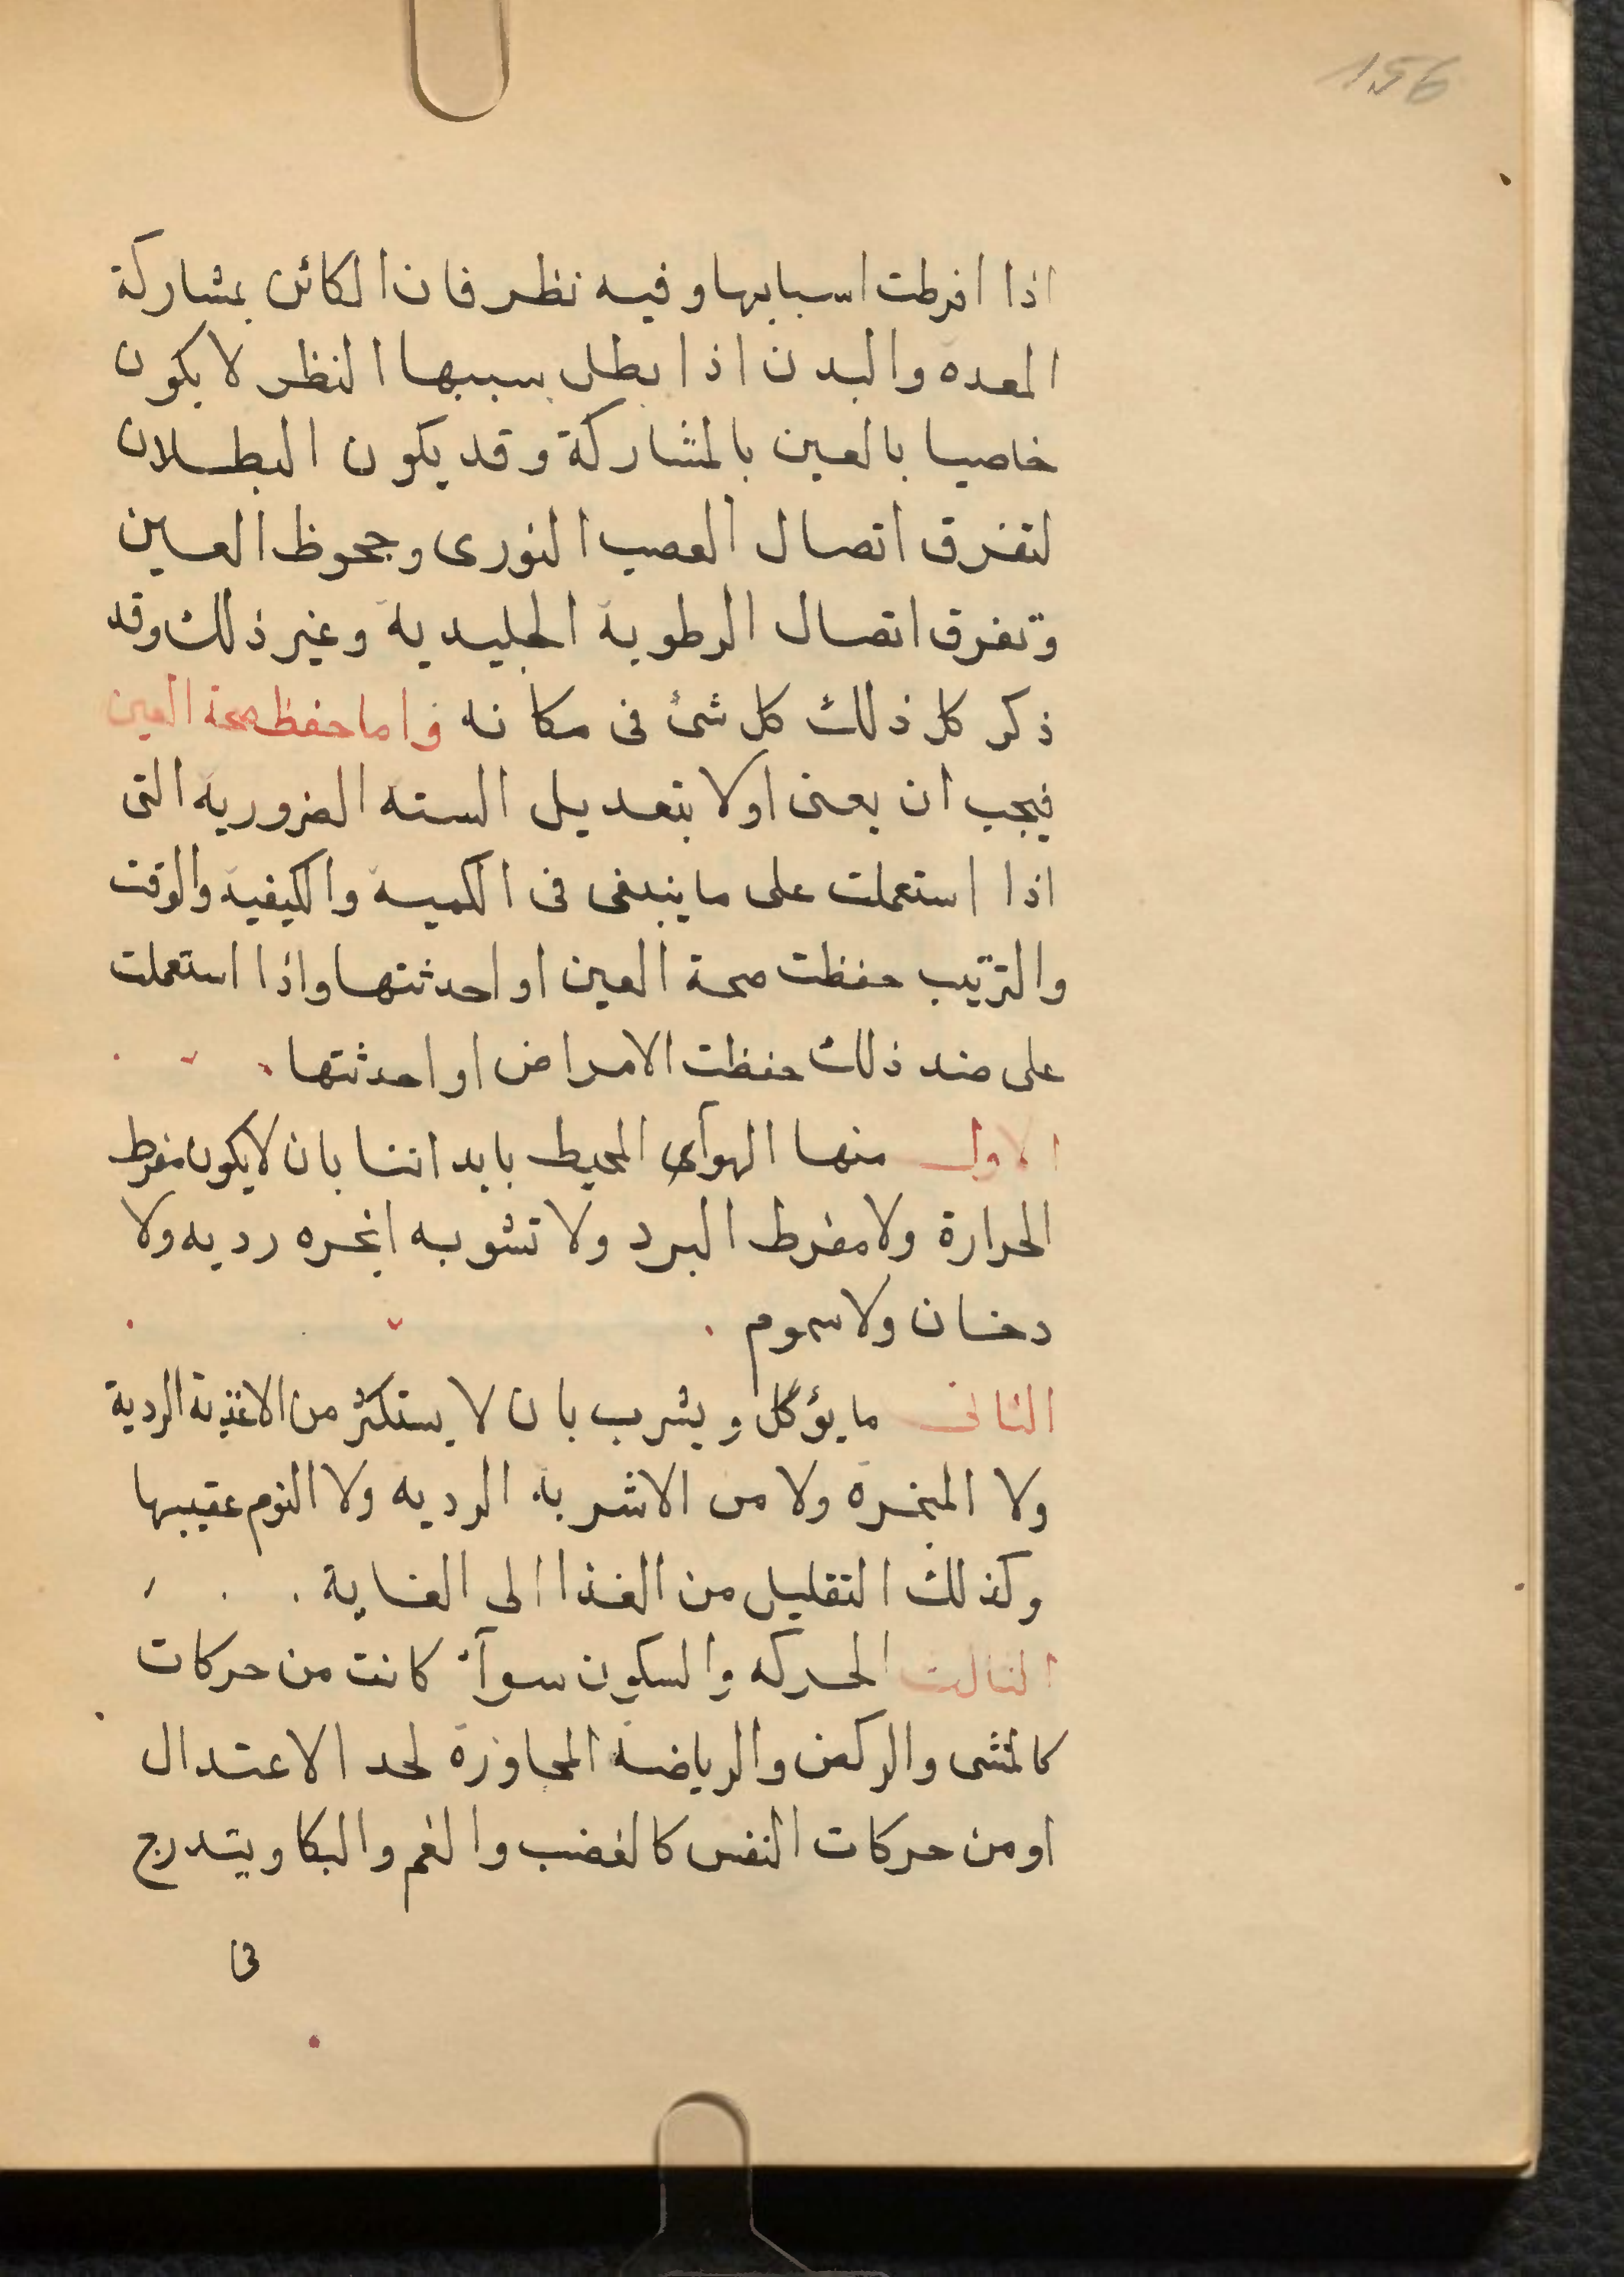 156
اذا افرطت اسبابها وفيه نظر فان الكائن بمشاركة
المعده والبدن اذا بطل سببها النظر لا يكون
خاصيا بالعين بالمشاركة وقد يكون البطلان
لتفرق اتصال العصب النورى وجحوظ العين
وتفرق اتصال الرطوبة الجليدية وغير ذلك وقد
ذكر كل ذلك كل شئ فى مكانه واما حفظ صحة العين
فيجب ان يعنى اولا بتعديل السته الضرورية التى
اذا استعملت على ما ينبغى فى الكمية والكيفية والوقت
والترتيب حفظت صحة العين او احدثتها واذا استعملت
على ضد ذلك حفظت الامراض او احدثتها
الاول منها الهوآى المحيط بابداننا بان لا يكون مفرط
الحرارة ولا مفرط البرد ولا تشوبه ابخره رديه ولا
دخان ولا سموم
الثانى ما يؤكل ويشرب بان لا يستكثر من الاغذية الردية
ولا المبخرة ولا من الاشربة الرديه ولا النوم عقيبها
وكذلك التقليل من الغذا الى الغاية
الثالث الحركه والسكون سوآء كانت من حركات
كالمشى والركض والرياضة المجاوزة لحد الاعتدال
او من حركات النفس كالغضب والغم والبكا ويتدرج
فى